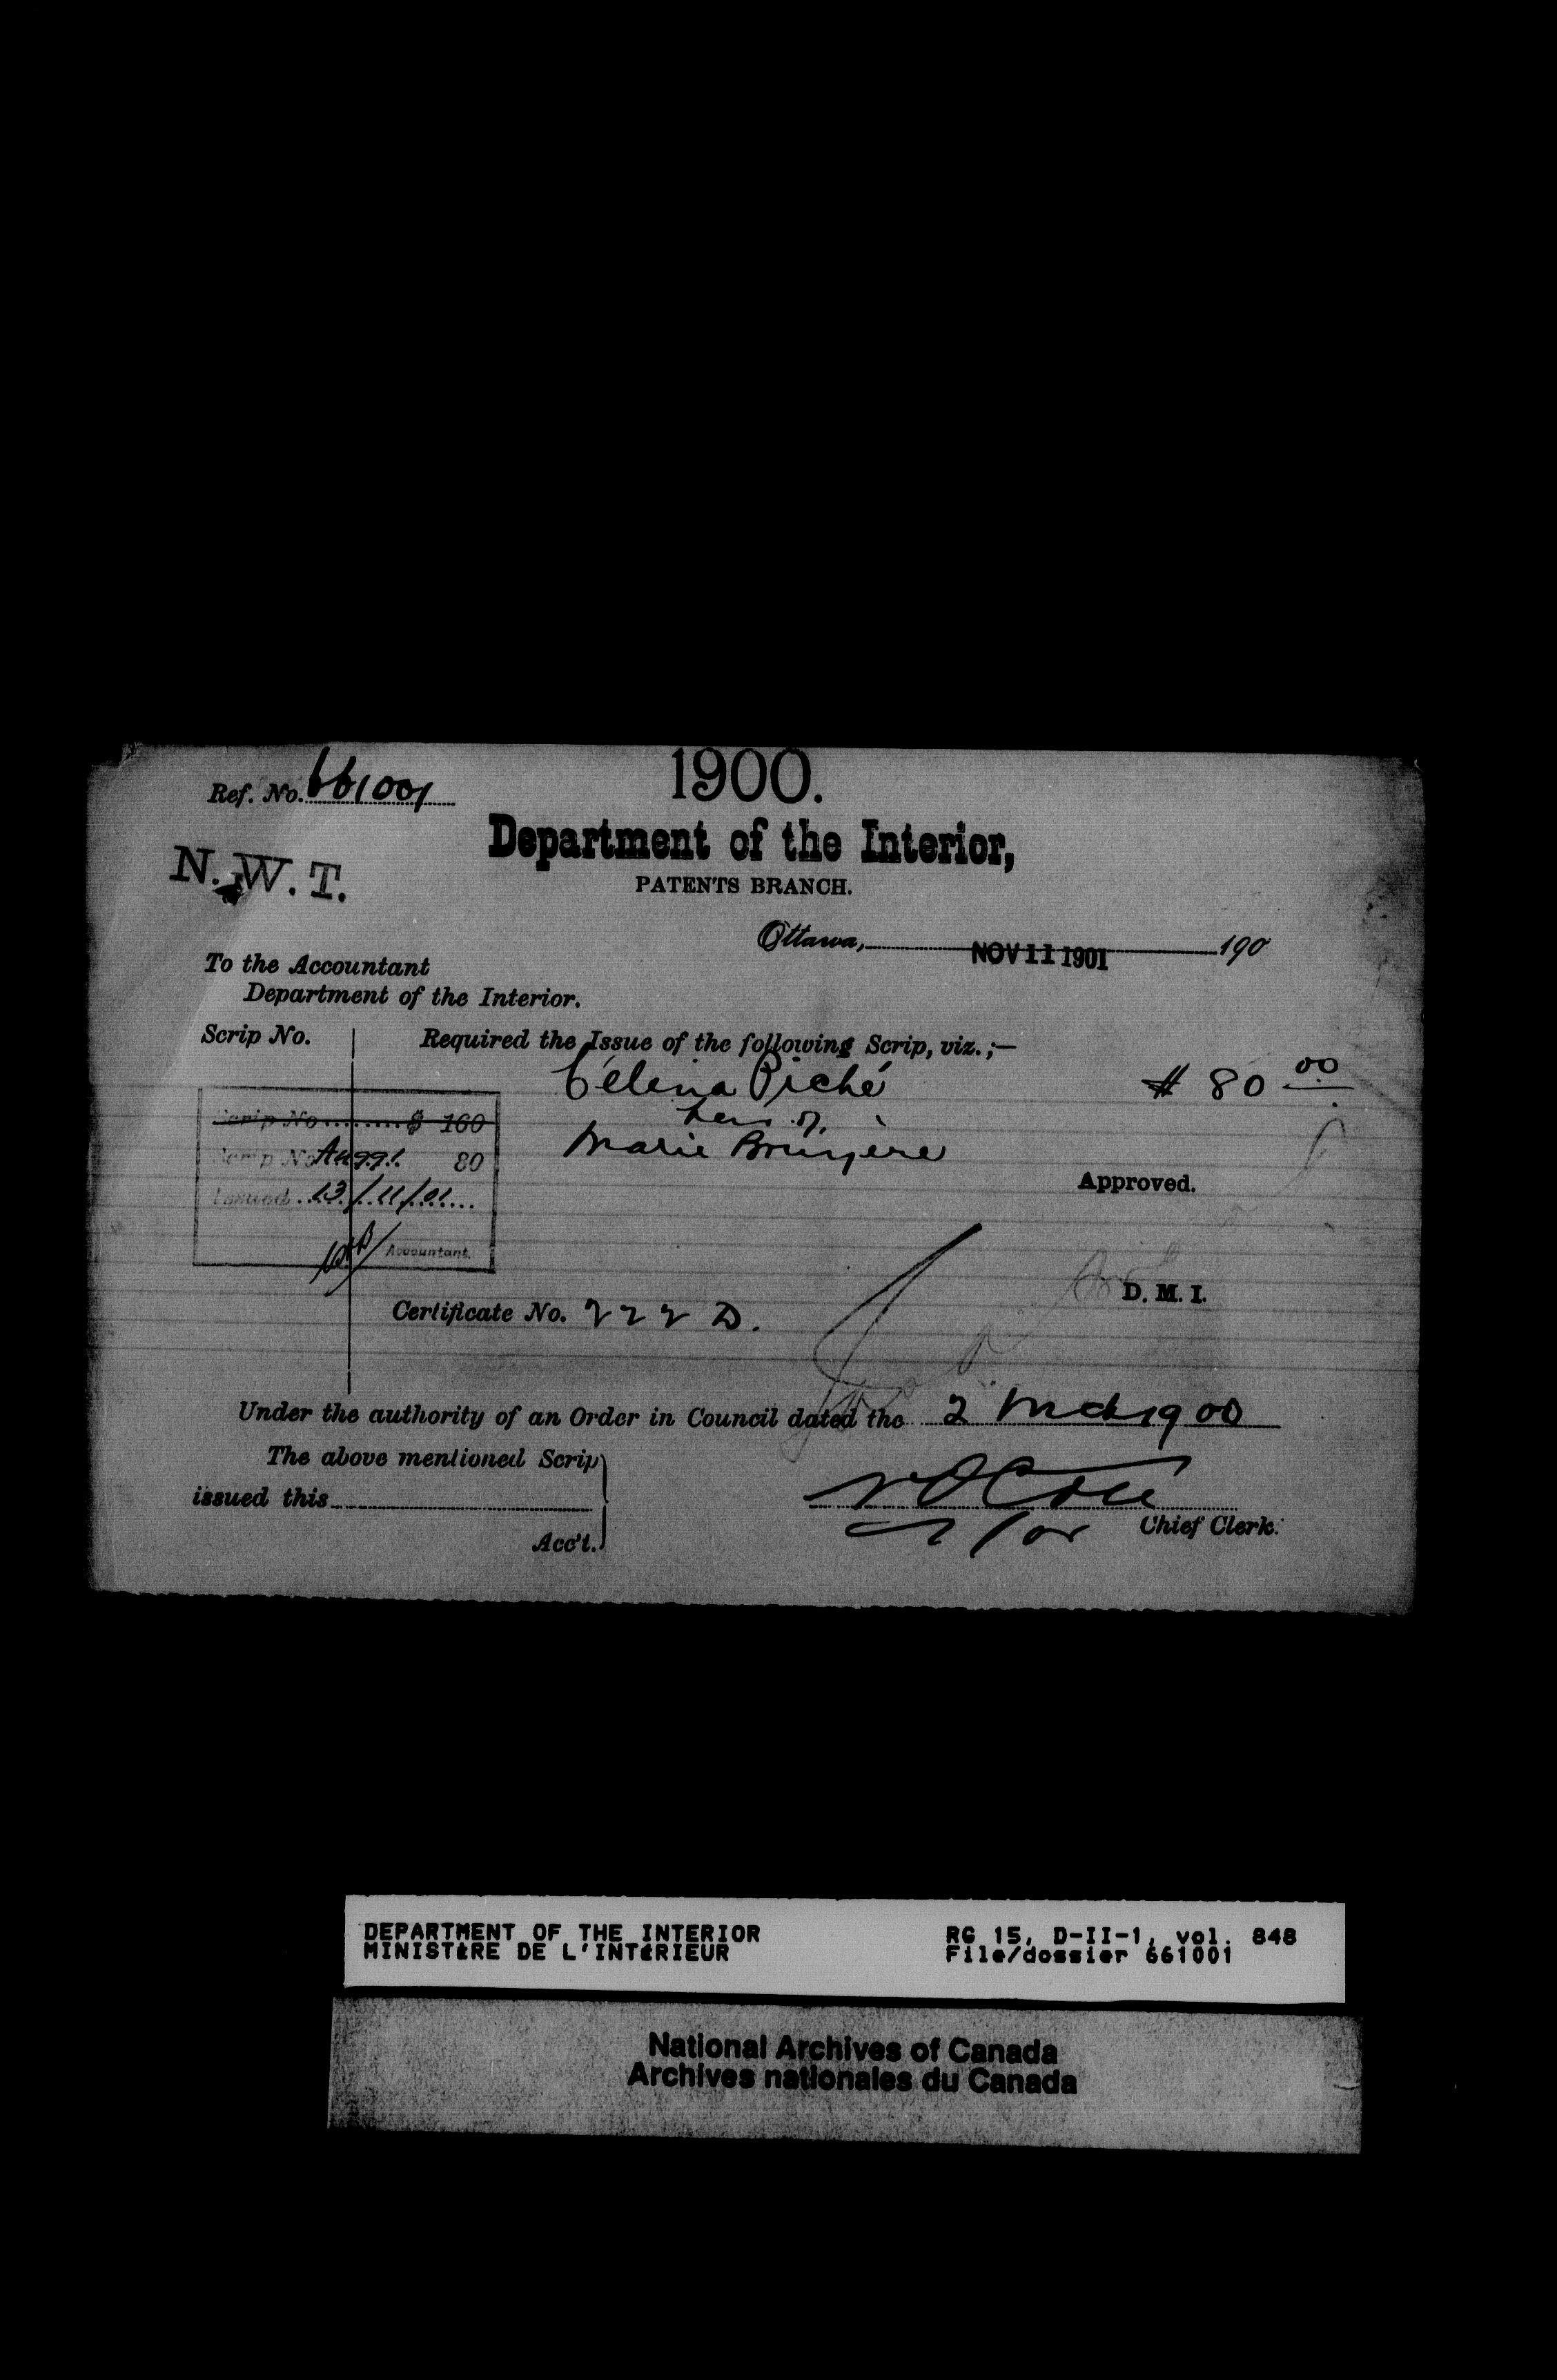 1900.
Ref. No. 661001
Department of the Interior,
N.W.T.
PATENTS BRANCH.
Ottawa, NOV 11 1901 190
To the Accountant
Department of the Interior.
Scrip No.
Required the Issue of the following Scrip, viz.;—
Célena Piché $ 80 00
heir of
Marie Bruyère
Scrip No. $ 160
Scrip No. 80
Issued 13/11/01
Accountant.
Approved.
D. M. I.
Certificate No. 222 D.
Under the authority of an Order in Council dated the 2 Mch 1900
The above mentioned Scrip
issued this
Acc't.
for Chief Clerk.
DEPARTMENT OF THE INTERIOR
MINISTÈRE DE L'INTÉRIEUR
RG 15, D-II-1, vol. 848
File/dossier 661001
National Archives of Canada
Archives nationales du Canada